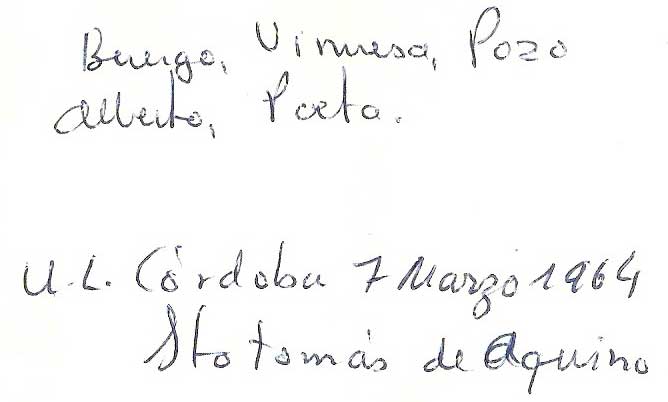 Buergo, Vinuesa, Pozo
Alberto, Poeta.
U.L. Córdoba 7 Marzo 1964
Sto tomás de Aquino